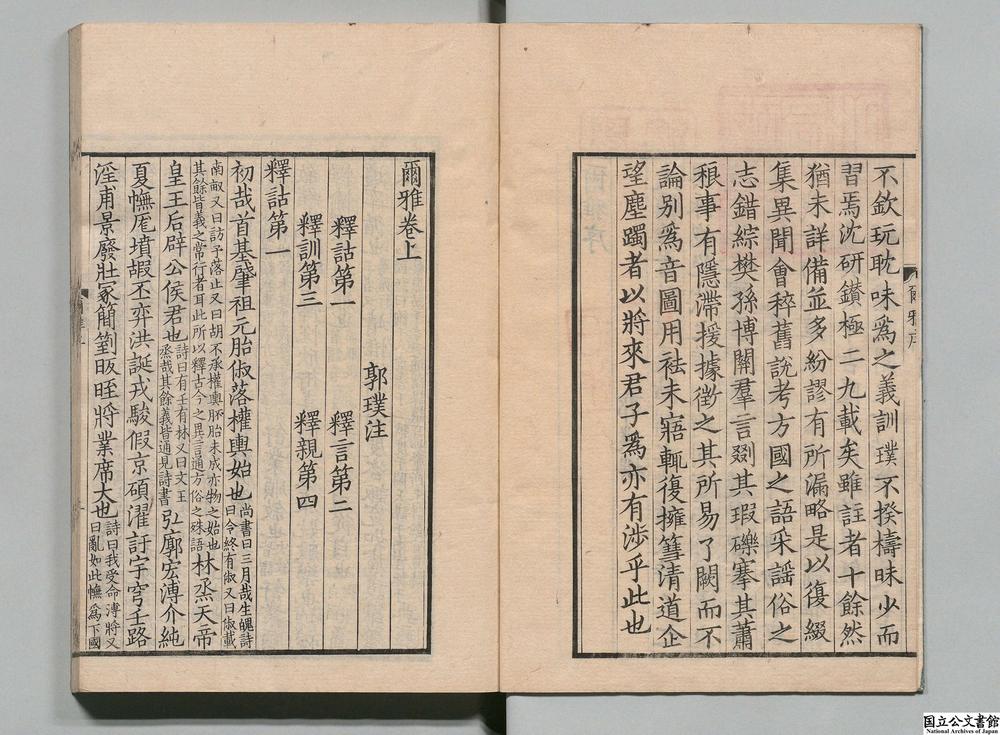 不欽玩耽味爲之義訓璞不揆檮昧少而
習焉沈研鑽極二九載矣雖註者十餘然
猶未詳備並多紛謬有所漏略是以復綴
集異聞會稡舊說考方國之語采謠俗之
志錯綜樊孫博關羣言剟其瑕礫搴其蕭
稂事有隱滯援據徵之其所易了闕而不
論別爲音圖用袪未寤輒復擁篲清道企
望塵躅者以將來君子爲亦有涉乎此也
爾雅序
爾雅卷上
郭璞注
釋詁第一 釋言第二
釋訓第三 釋親第四
釋詁第一
初哉首基肇祖元胎俶落權輿始也尚書曰三月哉生魄詩曰令終有俶又曰俶載
南畝又曰訪予落止又曰胡不承權輿胚胎未成亦物之始也其餘皆義之常行者耳此所以釋古今之異言通方俗之殊語林烝天帝
皇王后辟公侯君也詩曰有壬有林又曰文王烝哉其餘義皆通見詩書弘廓宏溥介純
夏幠厖墳嘏丕弈洪誕戎駿假京碩濯訏宇穹壬路
淫甫景廢壯冢簡箌昄晊將業席大也詩曰我受命溥將又曰亂如此幠爲下國
国立公文書館
National Archives of Japan